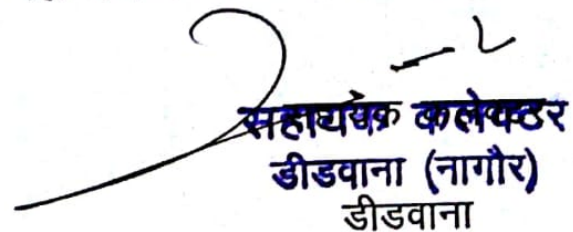 सहायक कलेक्टर
डीडवाना (नागौर)
डीडवाना